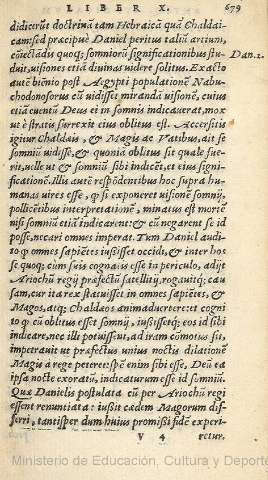 LIBER X. 679
didicerũt doctrinã tam Hebraicã quã Chaldai-
cam: sed præcipuè Daniel peritus taliũ artium,
cõiectãdis quoq; somniorũ significationibus stu-
duit, visiones etiã diuinas videre solitus. Exacto Dan.2.
autẽ biẽnio post Ægypti populationẽ Nabu-
chodonosorus cũ vidisset mirandã visionẽ, cuius
etiã euentũ Deus ei in somnis indicauerat, mox
ut è stratis surrexit eius oblitus est. Accersitis
igitur Chaldæis, & Magis ac Vatibus, ait se
somniũ vidisse, & quoniã oblitus sit quale fue-
rit, velle ut & somniũ sibi indicẽt, et eius signi-
ficationẽ. Illis autẽ respõdentibus hoc supra hu-
manas vires esse, q̃ si exponeret visionẽ somnij,
pollicẽtibus interpretationẽ, minatus est mortẽ
nisi somniũ etiã indicarent: & cũ negarent se id
posse, necari omnes imperat. Tum Daniel audi-
to q̃ omnes sapiẽtes iussisset occidi, & inter hos
se quoq; cum suis cognatis esse in periculo, adijt
Ariochũ regij præfectũ satellitij, rogauitq; cau
sam, cur ita rex statuisset in omnes sapiẽtes, &
Magos, atq; Chaldæos animaduertere: et cogni
to q̃ cũ oblitus esset somnij, iussissetq; eos id sibi
indicare, nec illi potuissent, ad iram cõmotus sit,
impetrauit ut præfectus unius noctis dilationẽ
Magis a rege peteret: spẽ enim sibi esse, Deũ ea
ipsa nocte exoratũ, indicaturum esse id somniũ.
Quæ Danielis postulata cũ per Ariochũ regi
essent renuntiata: iussit cædem Magorum dif-
ferri, tantisper dum huius promissi fidẽ experi-
V 4 retur.
Ministerio de Educación, Cultura y Deporte